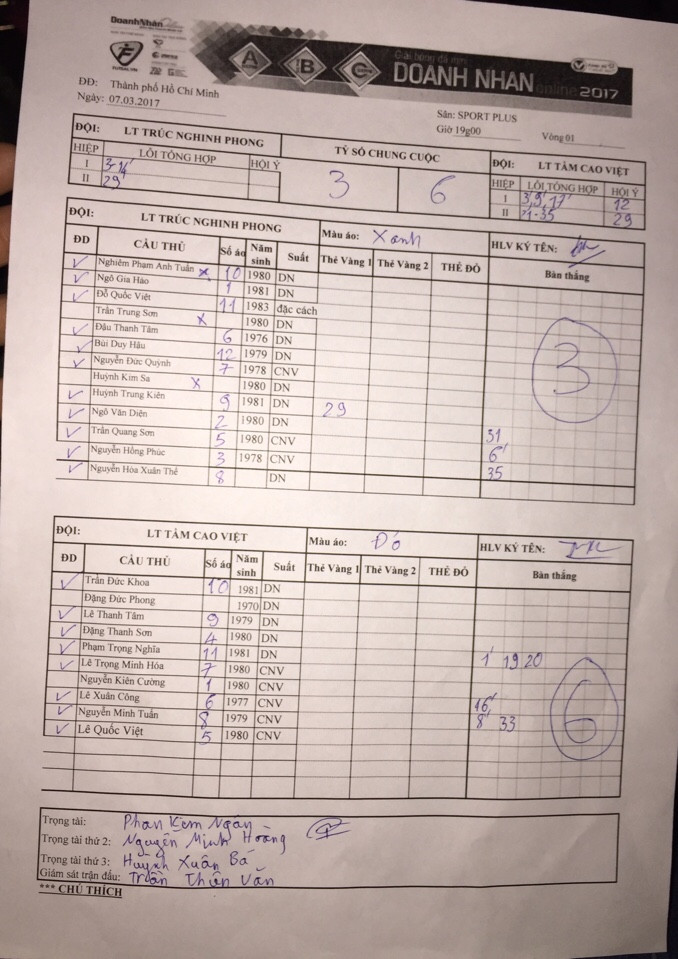 DoanhNhân
Giải bóng đá mini
A B C DOANH NHAN online 2017
ĐĐ: Thành phố Hồ Chí Minh
Ngày: 07.03.2017
Sân: SPORT PLUS
Giờ 19g00 Vòng 01
ĐỘI: LT TRÚC NGHINH PHONG TỶ SỐ CHUNG CUỘC ĐỘI: LT TÂM CAO VIỆT
HIỆP LỖI TỔNG HỢP HỘI Ý 3 6 HIỆP LỖI TỔNG HỢP HỘI Ý
I 3-14' I 3', 9', 17' 12
II 29' II 21-35 29
ĐỘI: LT TRÚC NGHINH PHONG Màu áo: Xanh HLV KÝ TÊN:
ĐD CẦU THỦ Số áo Năm sinh Suất Thẻ Vàng 1 Thẻ Vàng 2 THẺ ĐỎ Bàn thắng
Nghiêm Phạm Anh Tuấn x 10 1980 DN
Ngô Gia Hào 1 1981 DN
Đỗ Quốc Việt 11 1983 đặc cách
Trần Trung Sơn x 1980 DN
Đậu Thanh Tâm 6 1976 DN
Bùi Duy Hậu 12 1979 DN
Nguyễn Đức Quỳnh 7 1978 CNV
Huỳnh Kim Sa x 1980 DN
Huỳnh Trung Kiên 9 1981 DN 29
Ngô Văn Diện 2 1980 DN
Trần Quang Sơn 5 1980 CNV 31
Nguyễn Hồng Phúc 3 1978 CNV 6'
Nguyễn Hòa Xuân Thể 8 DN 35
3
ĐỘI: LT TÂM CAO VIỆT Màu áo: Đỏ HLV KÝ TÊN:
ĐD CẦU THỦ Số áo Năm sinh Suất Thẻ Vàng 1 Thẻ Vàng 2 THẺ ĐỎ Bàn thắng
Trần Đức Khoa 10 1981 DN
Đặng Đức Phong 1970 DN
Lê Thanh Tâm 9 1979 DN
Đặng Thanh Sơn 4 1980 DN
Phạm Trọng Nghĩa 11 1981 DN 1' 19 20
Lê Trọng Minh Hóa 7 1980 CNV
Nguyễn Kiên Cường 1 1980 CNV
Lê Xuân Công 6 1977 CNV 16'
Nguyễn Minh Tuấn 8 1979 CNV 8' 33
Lê Quốc Việt 5 1980 CNV
6
Trọng tài: Phan Kem Ngân
Trọng tài thứ 2: Nguyễn Minh Hoàng
Trọng tài thứ 3: Huỳnh Xuân Bá
Giám sát trận đấu: Trần Thiện Văn
*** CHÚ THÍCH